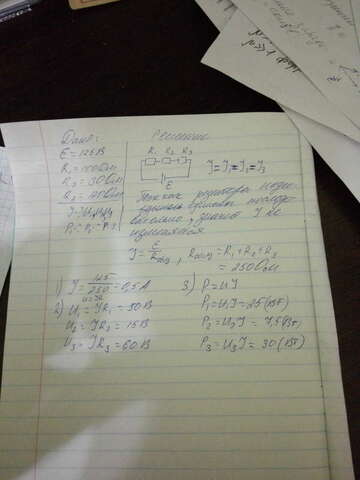 Дано:
E = 125 В
R₁ = 100 Ом
R₂ = 30 Ом
R₃ = 120 Ом
P₁-? P₂-? P₃-?
Решение
R₁ R₂ R₃
E
I = I₁ = I₂ = I₃
Так как резисторы
значит I не
изменяется
I = E/Rобщ, Rобщ = R₁ + R₂ + R₃
= 250 Ом
1) I = 125/250 = 0,5 А
2) U₁ = IR₁ = 50 В
U₂ = IR₂ = 15 В
U₃ = IR₃ = 60 В
3) P = UI
P₁ = U₁I = 25 (Вт)
P₂ = U₂I = 7,5 (Вт)
P₃ = U₃I = 30 (Вт)